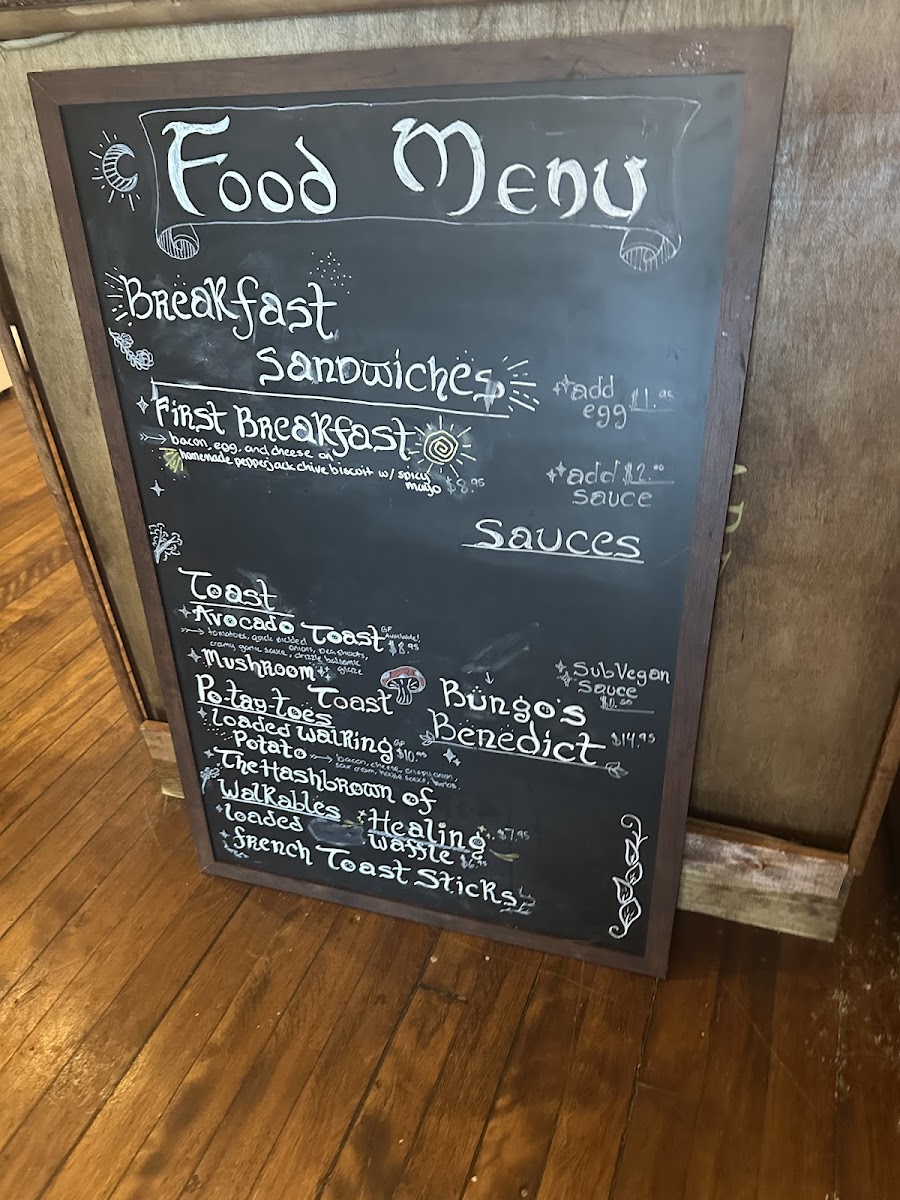 Food Menu
Breakfast
Sandwiches
add
egg $1.95
First Breakfast
bacon, egg, and cheese on
homemade pepperjack chive biscuit w/ spicy
mayo $8.95
add $2.00
sauce
Sauces
Toast
Avocado Toast GF
Available!
$8.95
tomatoes, quick pickled
onions, pea shoots,
creamy garlic sauce, drizzle balsamic
glaze
Mushroom
Toast
Sub Vegan
Sauce
Bungo's
Benedict $14.95
Po-tay-toes
Loaded Walking GF
Potato $10.95
bacon, cheese, crispy onion,
sour cream, house sauce,
The Hashbrown of
Healing $7.95
Walkables
Loaded
Waffle $6.95
french Toast Sticks